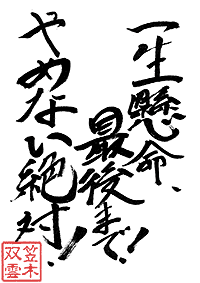 一生懸命、
最後まで!
やめない絶対!
笠木
双雲